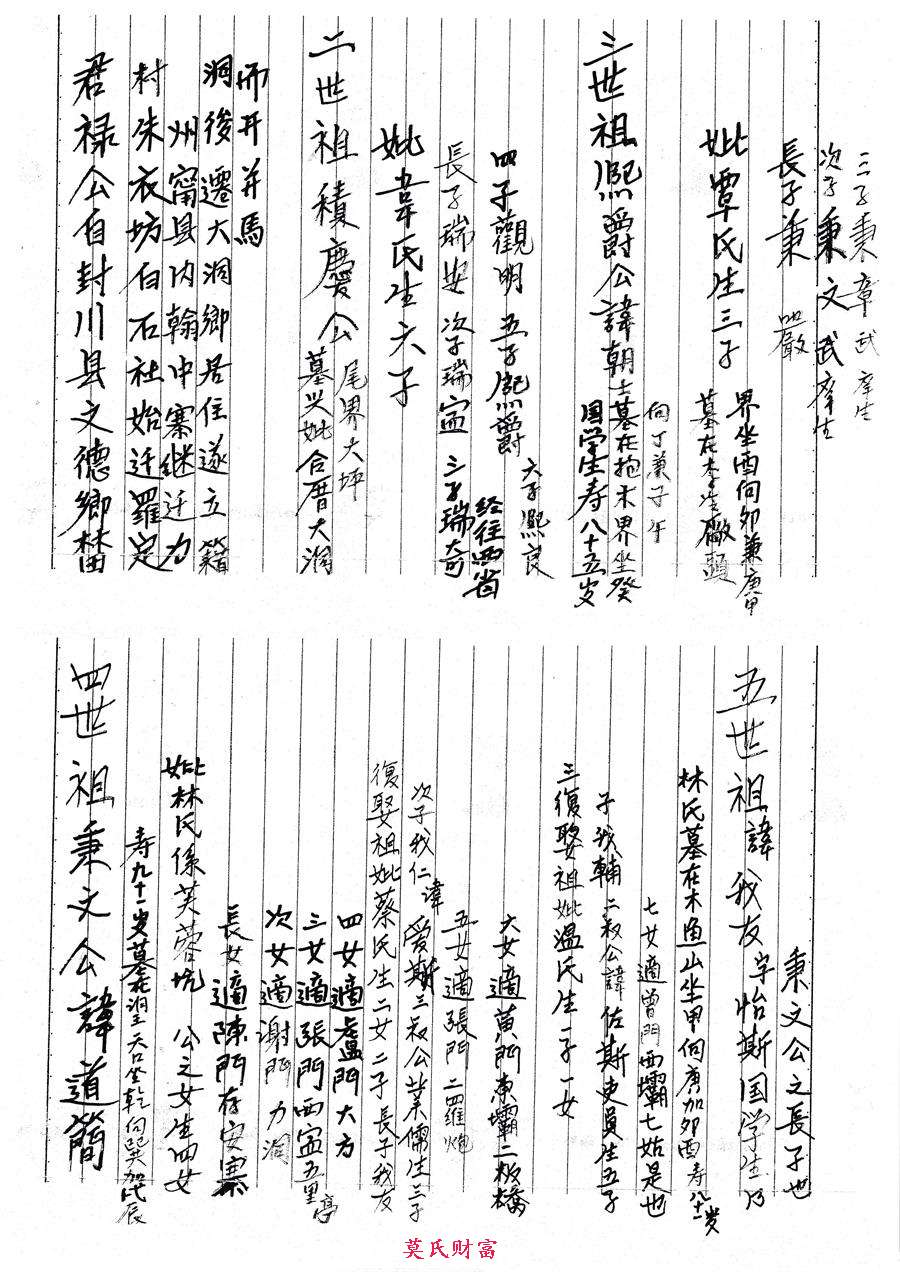 君禄公自封川县文德鄉
村朱衣坊白石社始迁羅定
州甯县内翰中寨继迁力
洞後遷大洞鄉居住遂立籍
而开并馬
二世祖積慶公墓與妣合厝大洞
尾界大坪
妣韋氏生六子
長子瑞安 次子瑞寍 三子瑞奇
经往西省
四子觀明 五子熈爵
六子熈良
三世祖熈爵公諱朝士墓在抱木界坐癸
国学生寿八十五岁
向丁兼子午
妣覃氏生三子
墓在李 廠頭
界坐酉向卯兼庚甲
長子秉嚴
次子秉文武庠生
三子秉章武庠生
四世祖秉文公諱道簡
寿九十一岁墓在洞 坐乾向巽加 辰
妣林氏係芙蓉坑 公之女生四女
長女適陳門存安寨
次女適謝門力洞
三女適張門西寍五里亭
四女適盧門大方
復娶祖妣蔡氏生二女二子長子我友
次子我仁諱爱斯三叔公業儒生三子
五女適張門二羅炮
六女適黄門東壩二板橋
三復娶祖妣温氏生一子一女
子我輔二叔公諱佐斯吏員生五子
七女適曾門西壩七姑是也
林氏墓在木魚山坐甲向庚加卯酉寿八十一岁
五世祖諱我友字怡斯国学生乃
秉文公之長子也
莫氏财富